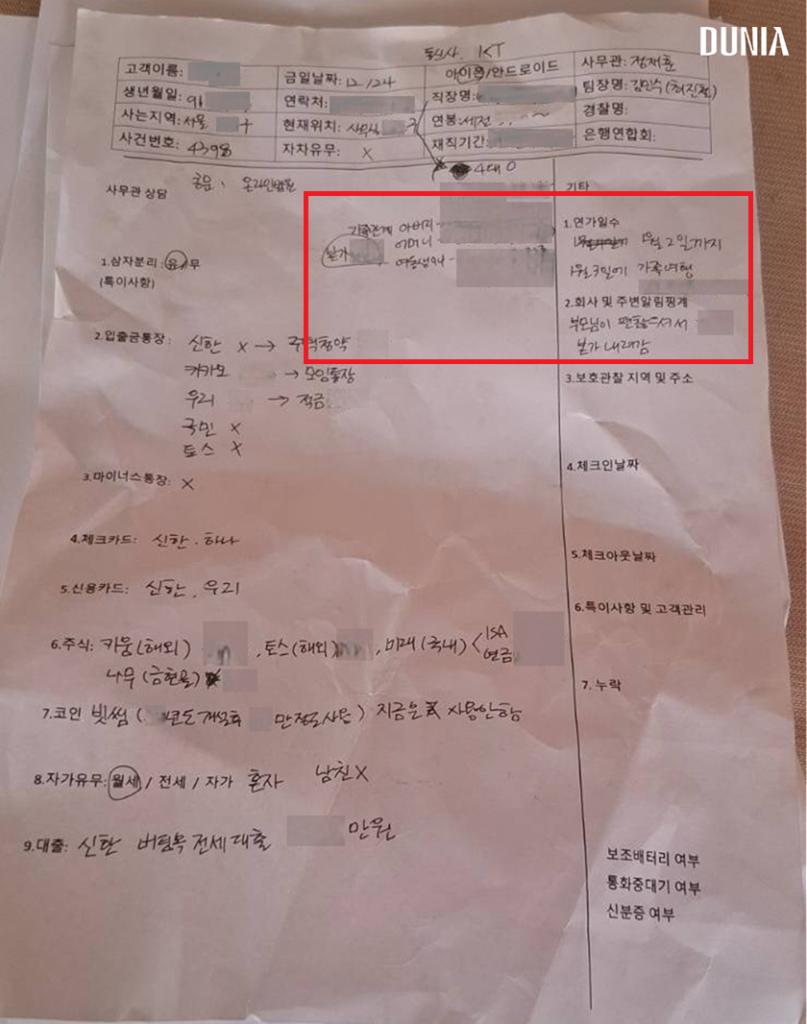 DUNIA
통신사 KT
고객이름:
금일날짜: 12/24
아이폰/안드로이드
사무관: 정재훈
생년월일: 91
연락처:
직장명:
팀장명: 김민수(허진철)
사는지역: 서울 구
현재위치: 구
연봉: 세전
경찰명:
사건번호: 4398
자차유무: X
재직기간:
은행연합회:
4대 O
사무관 상담
공문: 온라인법원
기타
가족관계 아버지-
어머니-
여동생
본가
1.연가일수
1월 2일까지
1월 3일에 가족여행
1.삼자분리: 유/무
(특이사항)
2.회사 및 주변알림핑계
부모님이 편찮으셔서
본가 내려감
2.입출금통장: 신한 X → 주택청약
카카오 → 모임통장
우리 → 적금
국민 X
토스 X
3.보호관찰 지역 및 주소
3.마이너스통장: X
4.체크인날짜
4.체크카드: 신한. 하나
5.체크아웃날짜
5.신용카드: 신한, 우리
6.특이사항 및 고객관리
6.주식: 키움(해외) , 토스(해외) , 미래(국내) < ISA
연금
나무(금현물)
7.누락
7.코인 빗썸 ( 년도 개설후 만정도사용) 지금은 사용안함
8.자가유무: 월세 / 전세 / 자가 혼자 남친X
9.대출: 신한 버팀목전세대출 만원
보조배터리 여부
통화중대기 여부
신분증 여부